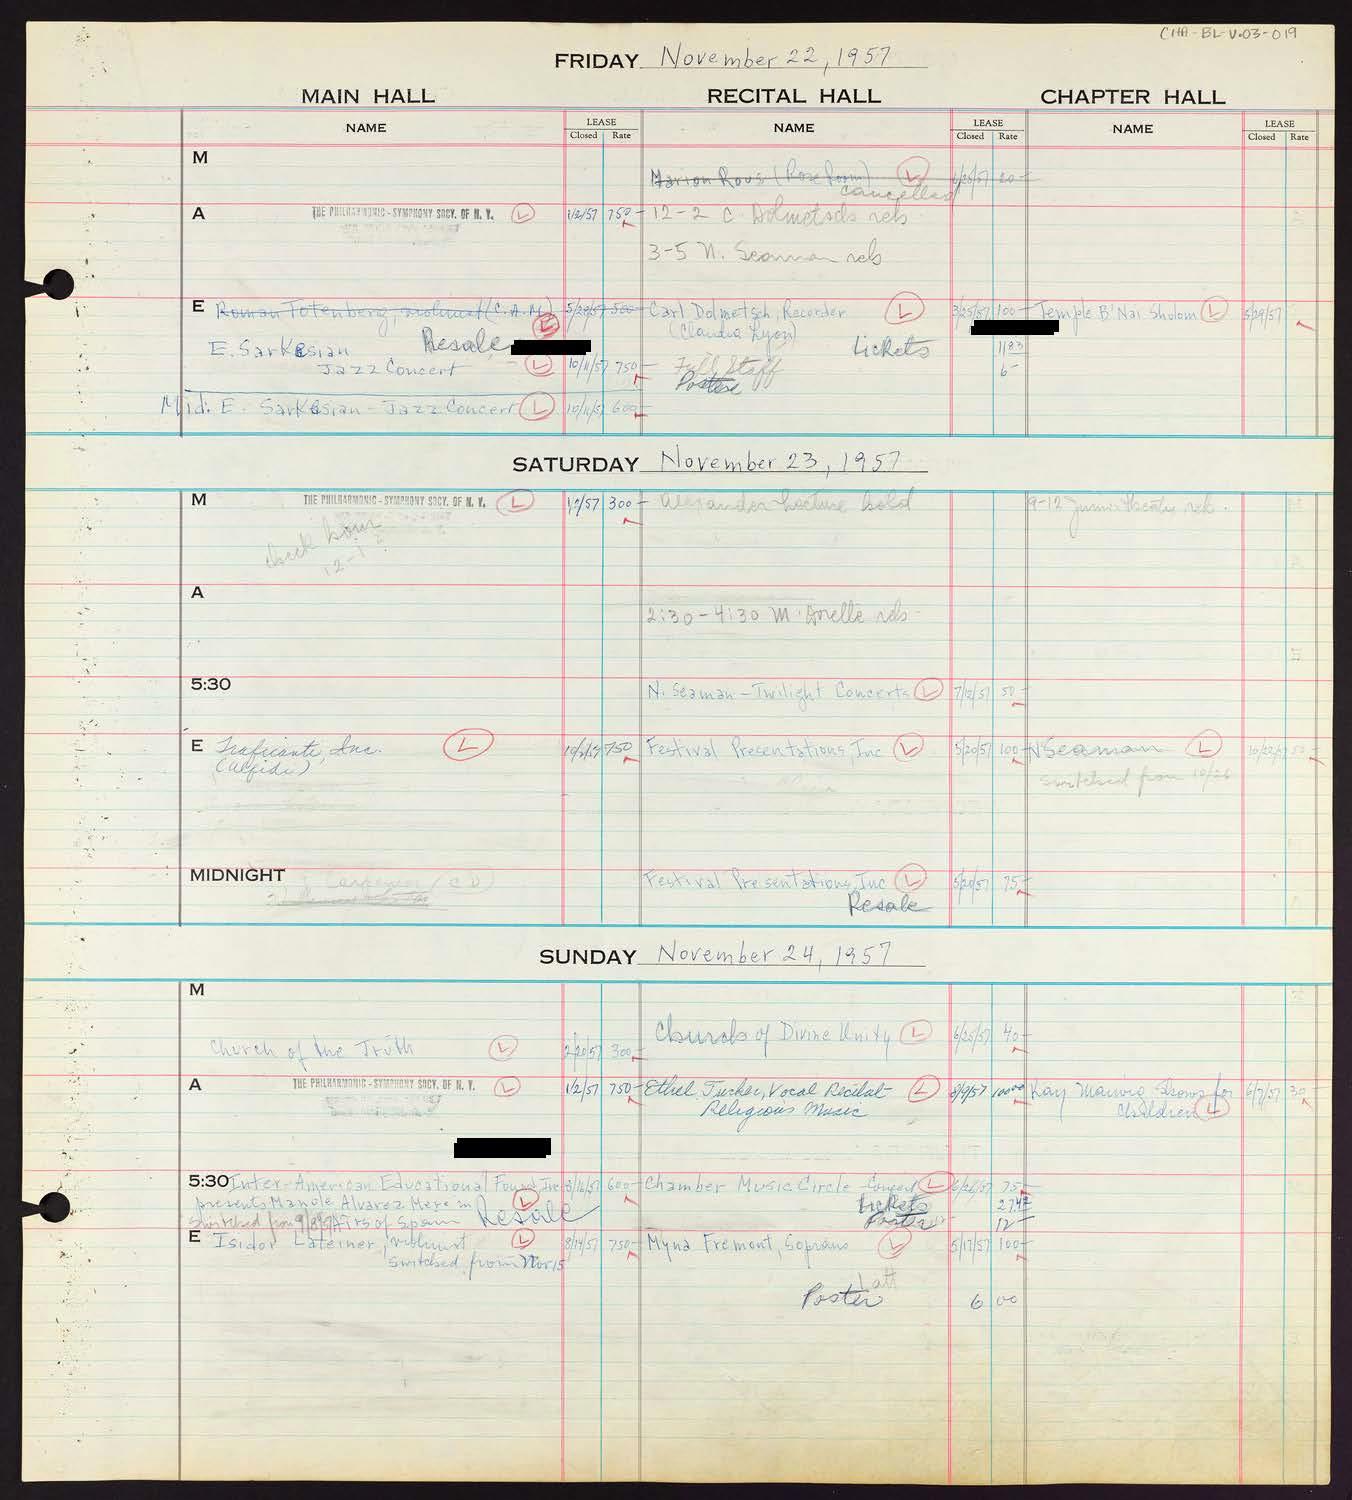 CHA-BL-V.03-019
FRIDAY November 22, 1957
MAIN HALL RECITAL HALL CHAPTER HALL
NAME LEASE Closed Rate NAME LEASE Closed Rate NAME LEASE Closed Rate
M
Marion Rous (Rose Room) L 20-
cancelled
A THE PHILHARMONIC-SYMPHONY SOCY. OF N. Y. L 1/2/57 750- 12-2 C. Dolmetsch reh
3-5 N. Seaman reh
E Roman Totenberg, violinist (C.A.M.) L 5/28/57 500- Carl Dolmetsch, Recorder L 3/25/57 100- Temple B'Nai Sholom L 5/29/57
(Claudia Lyon)
E. Sarkesian Resale Tickets 1183
Jazz Concert L 10/11/57 750- Full Staff 6-
Poster
Mid. E. Sarkesian - Jazz Concert L 10/11/57 600-
SATURDAY November 23, 1957
M THE PHILHARMONIC-SYMPHONY SOCY. OF N. Y. L 1/2/57 300- Alexander Lecture hold 9-12 Junior Theatre reh.
check hour
12-1
A
2:30-4:30 M. reh
5:30 N. Seaman - Twilight Concerts L 7/12/57 50-
E Traficanti, Inc. L 750- Festival Presentations, Inc L 5/20/57 100- N Seaman L 10/22/57 50-
switched from 10/26
MIDNIGHT Festival Presentations, Inc L 5/20/57 75-
Resale
SUNDAY November 24, 1957
M
Church of Divine Unity L 6/25/57 40-
Church of the Truth L 2/20/57 300-
A THE PHILHARMONIC-SYMPHONY SOCY. OF N. Y. L 1/2/57 750- Ethel Tucker, Vocal Recital- L 8/9/57 100 00 Kay Mainvio Shows for 6/7/57 30-
Religious Music Children L
5:30 Inter-American Educational Found, Inc 600- Chamber Music Circle - Concert L 6/26/57 75-
presents Manole Alvarez Mere in L Tickets
switched from 9/8/57 Airs of Spain Resale Poster 12-
E Isidor Lateiner, violinist L 8/14/57 750- Myna Fremont, Soprano L 5/17/57 100-
switched from Nov 15
Poster 6 00